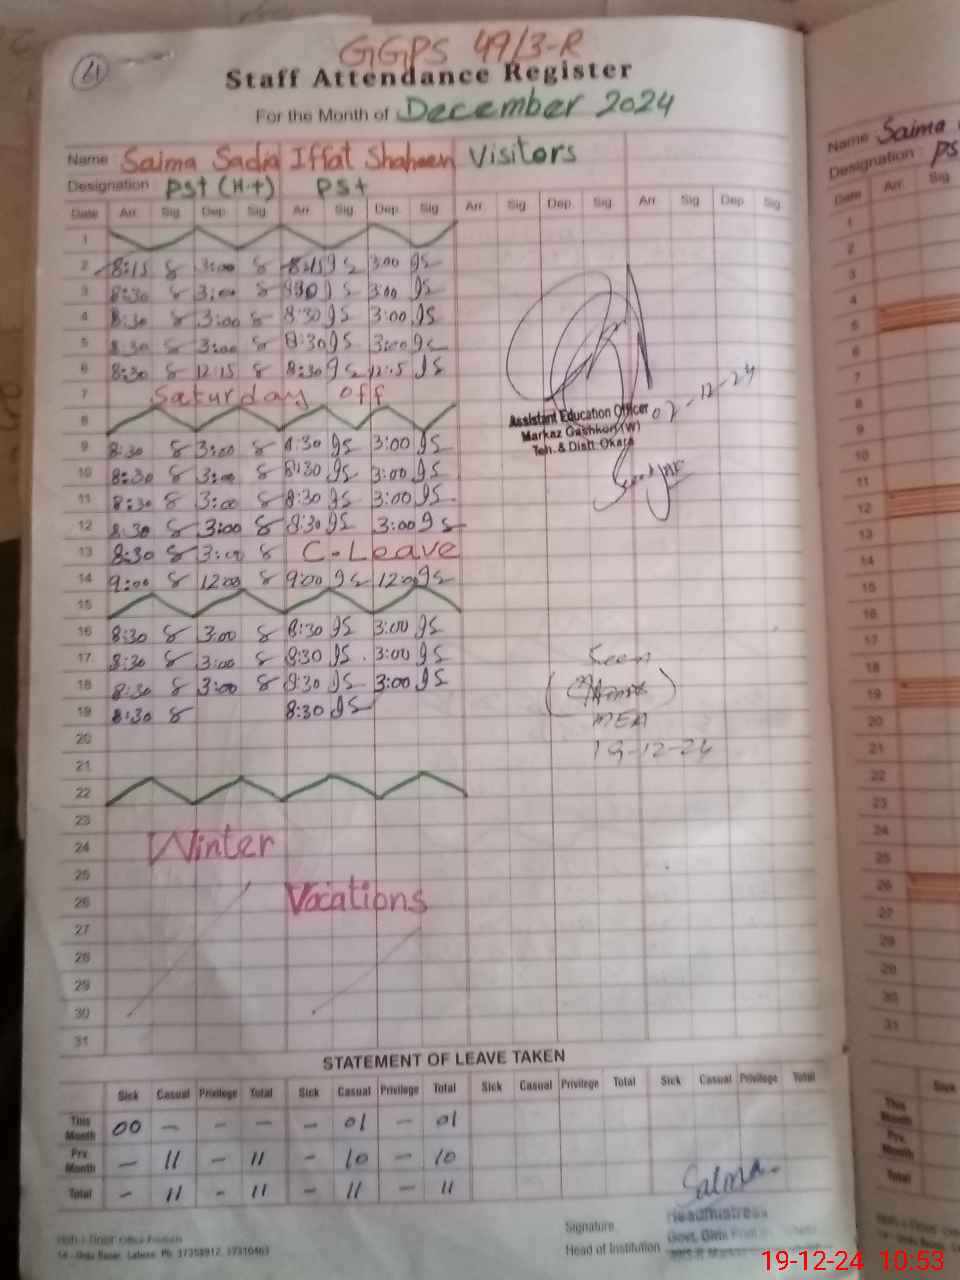 4
GGPS 49/3-R
Staff Attendance Register
For the Month of December 2024
Name Saima Sadia Iffat Shaheen Visitors
Designation PST (H.T) PST
Date Arr. Sig. Dep. Sig. Arr. Sig. Dep. Sig. Arr. Sig. Dep. Sig. Arr. Sig. Dep. Sig.
1
2 8:15 3:00 8:15 gs 3:00 gs
3 8:30 3:00 8:30 gs 3:00 gs
4 8:30 3:00 8:30 gs 3:00 gs
5 8:30 3:00 8:30 gs 3:00 gs
6 8:30 12:15 8:30 gs 12:15 gs
7 Saturday off
8
9 8:30 3:00 8:30 gs 3:00 gs
10 8:30 3:00 8:30 gs 3:00 gs
11 8:30 3:00 8:30 gs 3:00 gs
12 8:30 3:00 8:30 gs 3:00 gs
13 8:30 3:00 C-Leave
14 9:00 12:00 9:00 gs 12:00 gs
15
16 8:30 3:00 8:30 gs 3:00 gs
17 8:30 3:00 8:30 gs 3:00 gs
18 8:30 3:00 8:30 gs 3:00 gs
19 8:30 8:30 gs
20
21
22
23
24 Winter
25
26 Vacations
27
28
29
30
31
07-12-24
Assistant Education Officer
Markaz Gashkori (W)
Teh. & Distt. Okara
Seen
MEA
19-12-24
STATEMENT OF LEAVE TAKEN
Sick Casual Privilege Total Sick Casual Privilege Total Sick Casual Privilege Total Sick Casual Privilege Total
This Month 00 - - - - 01 - 01
Prv. Month - 11 - 11 - 10 - 10
Total - 11 - 11 - 11 - 11
Saima
Signature
Headmistress
Head of Institution
Office Products
14 - Urdu Bazar, Lahore. Ph: 37358912, 37310463
Name Saima
Designation PS
Date Arr. Sig
1
2
3
4
5
6
7
8
9
10
11
12
13
14
15
16
17
18
19
20
21
22
23
24
25
26
27
28
29
30
31
Sick
This Month
Prv. Month
Total
19-12-24 10:53